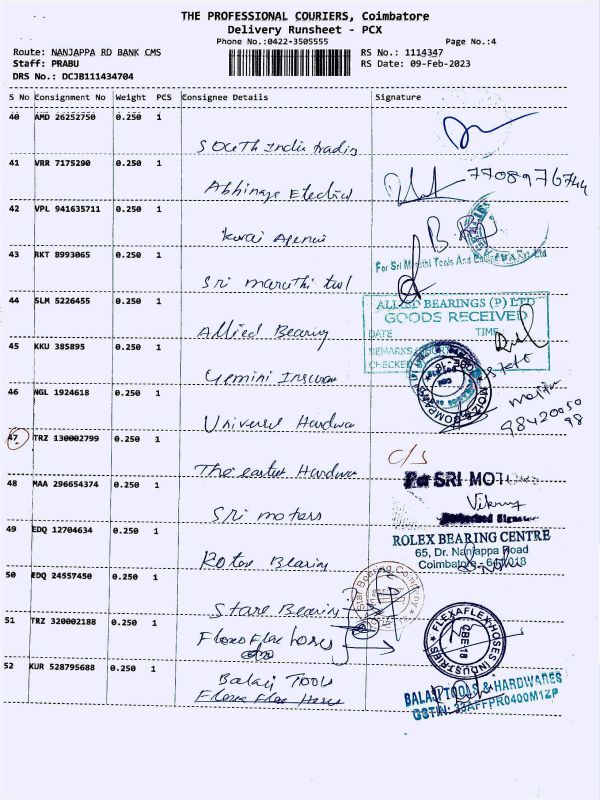 THE PROFESSIONAL COURIERS, Coimbatore
Delivery Runsheet - PCX
Phone No.:0422-3505555 Page No.:4
Route: NANJAPPA RD BANK CMS RS No.: 1114347
Staff: PRABU RS Date: 09-Feb-2023
DRS No.: DCJB111434704
S No Consignment No Weight PCS Consignee Details Signature
40 AMD 26252750 0.250 1
South India trading
41 VRR 7175290 0.250 1
Abhinaya Electrical 7708976744
42 VPL 941635711 0.250 1
Kovai Agencies
For Sri Maruthi Tools And
43 RKT 8993065 0.250 1
Sri maruthi tool
44 SLM 5226455 0.250 1
ALLIED BEARINGS (P) LTD
GOODS RECEIVED
DATE TIME
Allied Bearing
REMARKS
CHECKED
45 KKU 385895 0.250 1
Gemini Insuran
46 NGL 1924618 0.250 1
Universal Hardwa
98420050
98
47 TRZ 130002799 0.250 1
C/S
The eastern Hardwa
48 MAA 296654374 0.250 1
For SRI MOT
Sri motors
Authorised Signatory
49 EDQ 12704634 0.250 1
ROLEX BEARING CENTRE
65, Dr. Nanjappa Road
Coimbatore - 641018
Rotex Bearing
50 EDQ 24557450 0.250 1
Star Bearing Company
Stare Bearing
51 TRZ 320002188 0.250 1
Flexo Flex hoses
FLEXAFLEX HOSES INDUSTRIES
CBE 18
52 KUR 528795688 0.250 1
Balaji Tools
Flexa Flex Hoses
BALAJI TOOLS & HARDWARES
GSTIN: 33AFFPR0400M1ZP